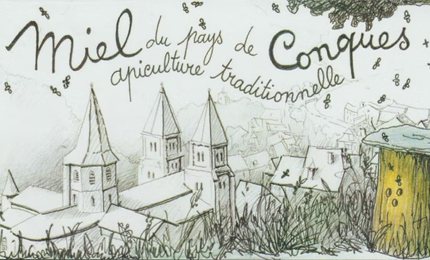 Miel du pays de Conques
apiculture traditionnelle